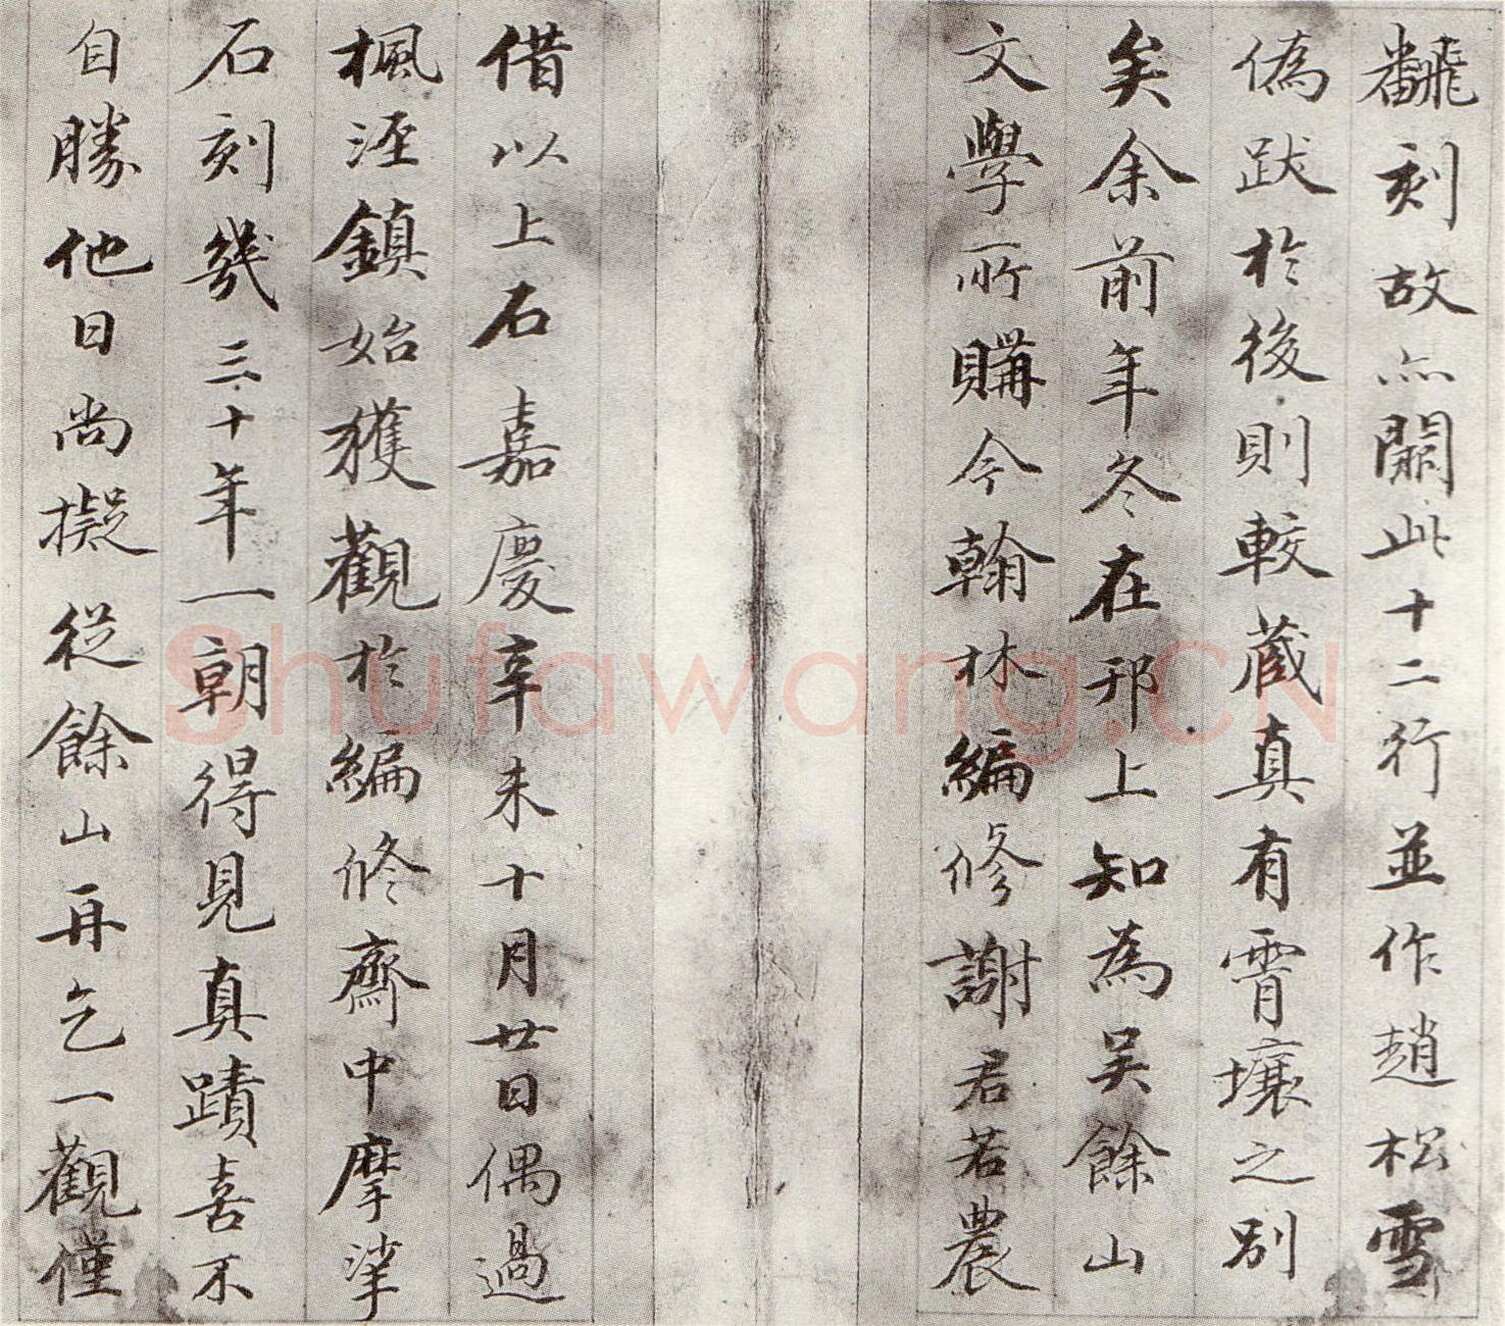 飜刻故亦闕此十二行並作趙松雪
偽跋於後則較蔵真有霄壤之別
矣余前年冬在邗上知為吴餘山
文學所購今翰林編修謝君若農
借以上石嘉慶辛未十月廿日偶過
楓涇鎮始獲觀於編修齋中摩挲
石刻幾三十年一朝得見真蹟喜不
自勝他日尚擬從餘山再乞一觀僅
Shufawang.CN